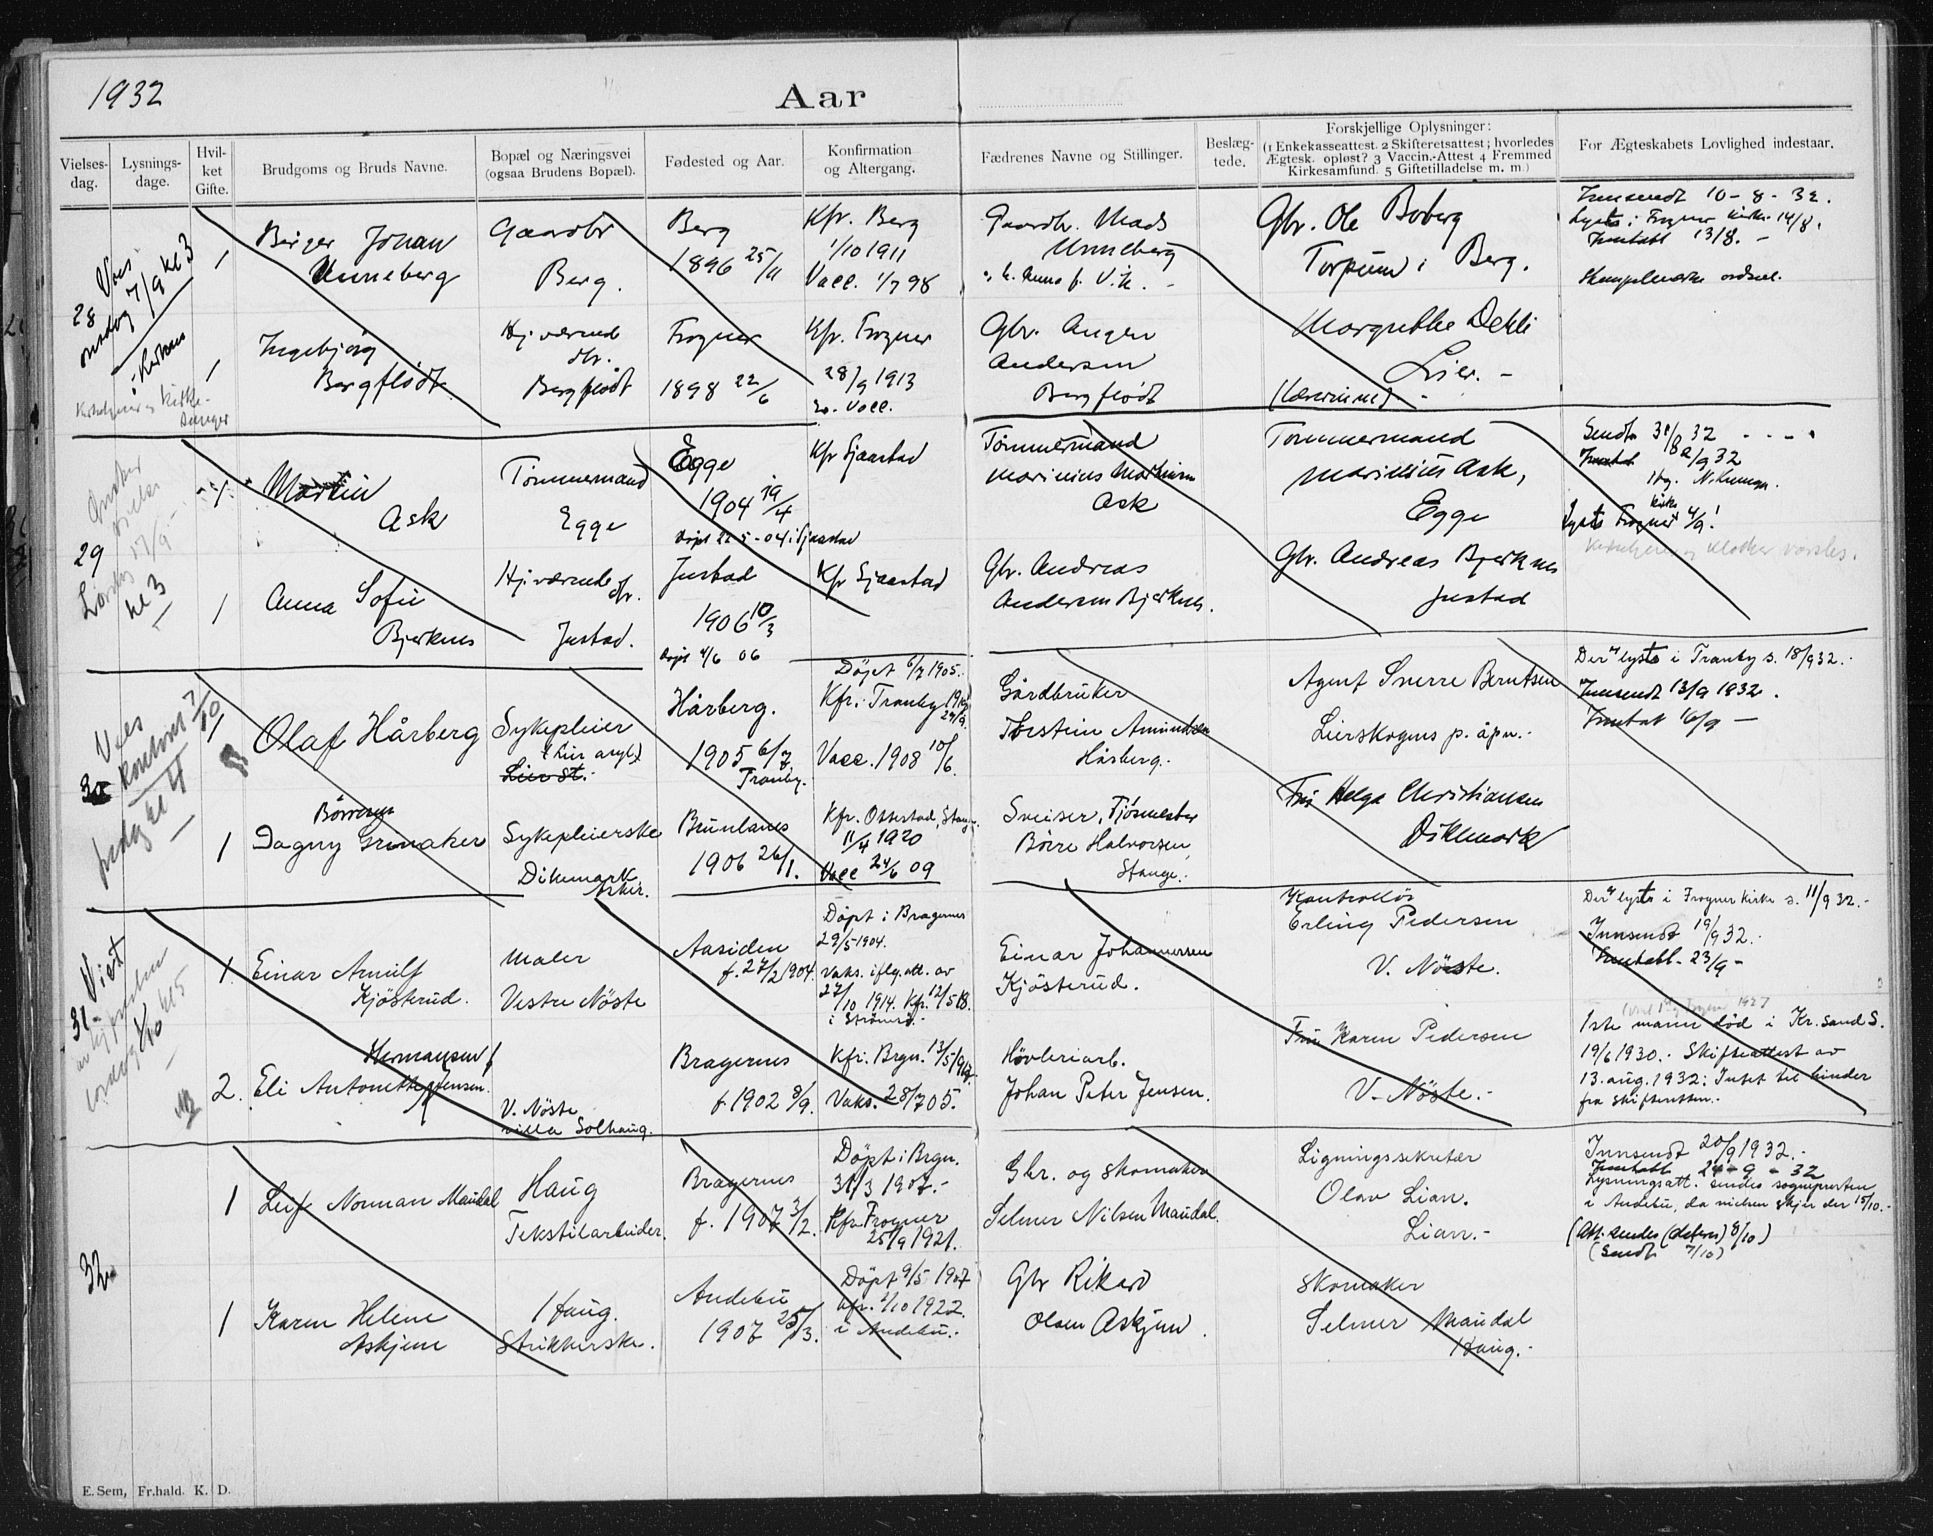 1932
Aar
Vielses-
dag.
Lysnings-
dage.
Hvil-
ket
Gifte.
Brudgoms og Bruds Navne.
Bopæl og Næringsvei
(ogsaa Brudens Bopæl).
Fødested og Aar.
Konfirmation
og Altergang.
Fædrenes Navne og Stillinger.
Beslæg-
tede.
Forskjellige Oplysninger:
(1 Enkekasseattest. 2 Skifteretsattest; hvorledes
Ægtesk. opløst? 3 Vaccin.-Attest 4 Fremmed
Kirkesamfund. 5 Giftetilladelse m. m.)
For Ægteskabets Lovlighed indestaar.
28
onsdag 7/9 kl 3
1
Birger Johan
Unneberg
Gaardbr
Berg.
Berg
1896 25/11
Kfr. Berg
1/10 1911
Vacc. 1/7 98
Gaardbr. Mads
Unneberg
Gbr. Ole Boberg
Torpum i Berg.
Innsendt 10-8-32.
Lyst i Frogner kirke 14/8.
13/8. -
1
Ingebjörg
Bergflödt.
Hjværende
dtr.
Bergflödt
Frogner
1898 22/6
Kfr. Frogner
28/9 1913
Vacc.
Gbr.
Andersen
Bergflödt
Margrethe Dehli
Lier. -
29
Lördag 17/9
kl 3
Martin
Ask
Tömmermand
Egge
Egge
1904 19/4
Döpt 22-5-04 i Sjaastad
Kfr Sjaastad
Tömmermand
Marinius
Ask
Tömmermand
Marinius Ask,
Egge
Sendt 31/8 32
2/9 32
Lyst Frogner kirke 4/9!
1
Anna Sofie
Bjerknes
Hjværende dtr.
Justad.
Justad
1906 10/3
Döpt 4/6 06
Kfr Sjaastad
Gbr. Andreas
Andersen Bjerknes.
Gbr. Andreas Bjerknes
Justad
30
Vies
kontoret 7/10
fredag kl 4
Olaf Hårberg
Sykepleier
(Lier asyl)
Lier st.
Hårberg.
1905 6/7
Tranby.
Döpt 6/7 1905.
Kfr. i Tranby
Vacc. 1908 10/6.
Gårdbruker
Torstein Amundsen
Hårberg.
Agent Sverre Berntsen
Lierskogens p. åpn.-
Der lyst i Tranby s. 18/9 32.
Innsendt 13/9 1932.
16/9 -
1
Börresen
Dagny Grinaker
Sykepleierske
Dikemark
Asker.
Brunlanes
1906 26/1.
Kfr. Ottestad, Stange.
11/4 1920
Vacc 24/6 09
Sveiser, Fjösmester
Börre Halvorsen
Stange.
Frk Helga Christiansen
Dikemark
31
Viet
lördag 1/10 kl 5
1.
Einar Arnulf
Kjösterud.
Maler
Vestre Nöste
Aasiden
f. 27/2 1904.
Döpt i Bragernes
29/5-1904.
Vaks. iflg. att. av
27/10 1914. Kfr. 12/5 18.
i Strömsö.-
Einar Johannessen
Kjösterud.
Kontrollör
Erling Pedersen
V. Nöste.
Der lyst i Frogner kirke s. 11/9 32.-
Innsendt 19/9 32.-
23/9 -
2.
Hermansen f
Eli Antonette Jensen.
V. Nöste
villa Solhaug.
Bragernes
f. 1902 8/9.
Kfr. Brgn. 13/5 1917.
Vaks. 28/7 05.
Hövleriarb.
Johan Peter Jensen.
Fru Karen Pedersen
V. Nöste.-
1ste mann död i Kr.sand S.
19/6 1930.- Skifteattest av
13. aug. 1932: Intet til hinder
fra skifteretten.-
32
1
Leif Norman Maudal
Haug
Tekstilarbeider.
Bragernes
f. 1907 3/2.
Döpt i Brgn.
31/3 1907.-
Kfr. Frogner
25/9 1921.
Gbr. og skomaker
Selmer Nilsen Maudal.
Ligningssekretær
Olav Lian.
Lian.-
Innsendt 20/9 1932.-
24-9-32
Lysningsatt. sendes sognepresten
i Andebu, da vielsen skjer der 15/10.-
(Att. sendes 8/10)
(Sendt 7/10)
1
Karen Helene
Askjem
Haug.
Strikkerske.
Andebu
1907 25/3.
Döpt 9/5 1907
Kfr. 1/10 1922.
i Andebu.-
Gbr Rikard
Olsen Askjem.
Skomaker
Selmer Maudal
Haug.-
E. Sem, Fr.hald. K. D.